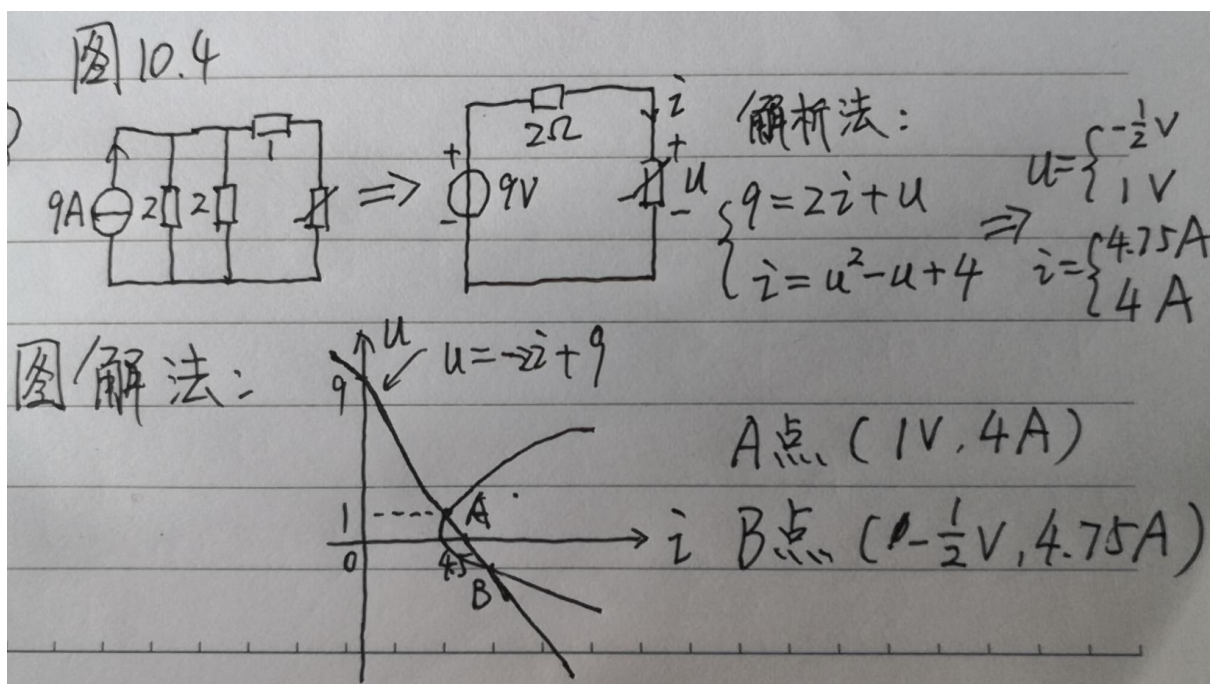 图10.4
9A 2 2 1
⇒
2Ω i
+ 9V -
+ u -
解析法:
{9=2i+u
i=u²-u+4
⇒
u={-1/2V
1V
i={4.75A
4A
图解法:
u
u=-2i+9
9
1
A
0
4.5
B
i
A点(1V,4A)
B点(-1/2V,4.75A)